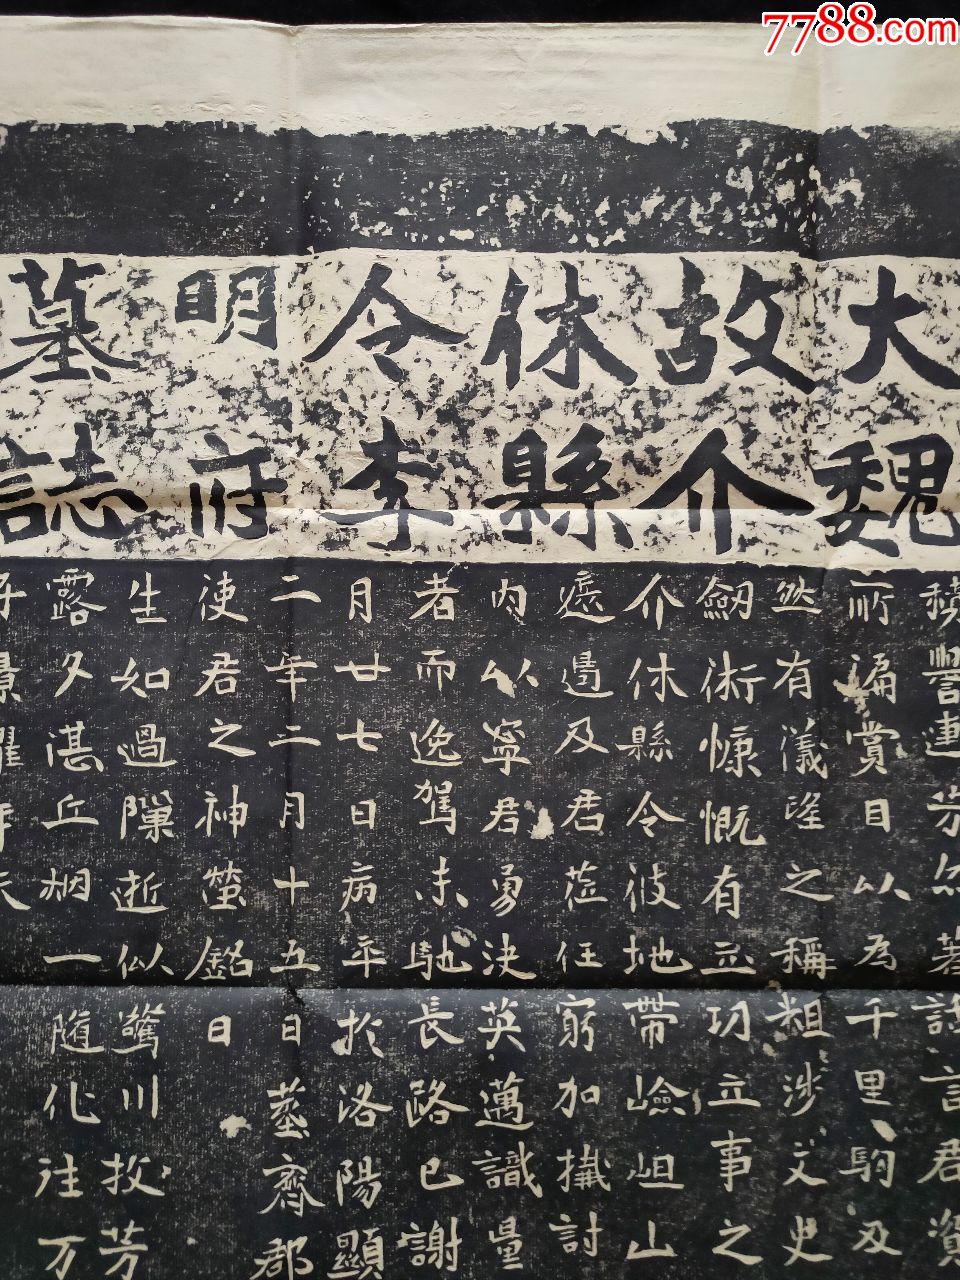 7788.com
大魏
故介
休縣
令李
明府
墓誌
譽連芳
所遍賞目以為千里駒及
然有儀望之稱粗涉文史
劒術慷慨有立功立事之
介休縣令彼地帶嶮岨山
及君莅任窮加討
内以寧君勇決英邁識量
者而逸駕未馳長路已謝
月廿七日病卒於洛陽顯
二年二月十五日葬齊郡
使君之神塋銘曰
生如過隟逝似驚川芳
露夕湛丘桐一隨化往万